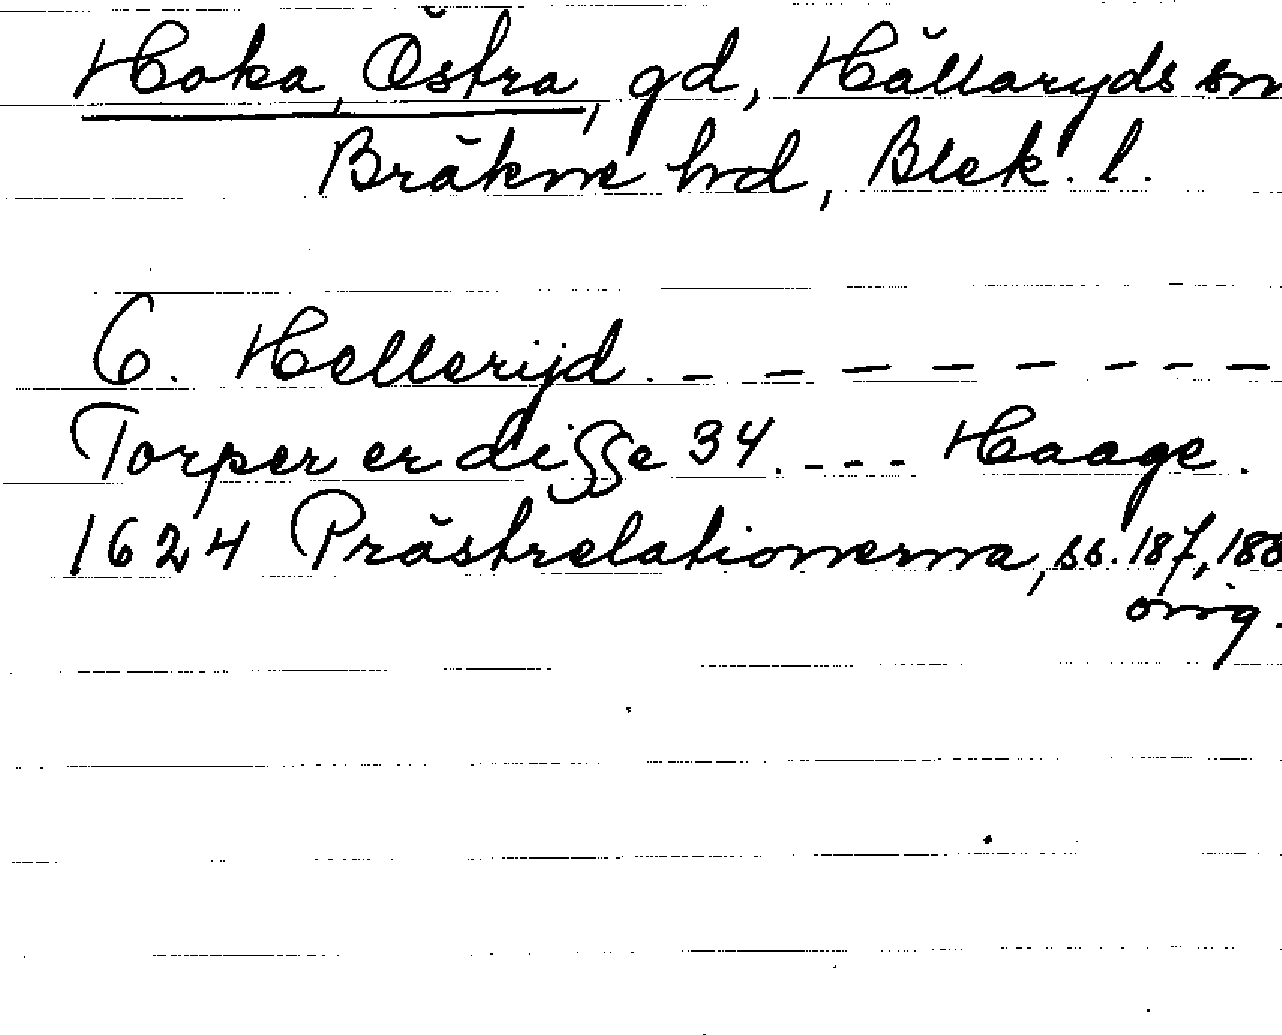 Hoka, Östra, gd, Hällaryds sn
Bräkne hd, Blek. l.
6. Hellerijd. – – – – – – – –
Torper er disse 34. – – – Haage.
1624 Prästrelationerna, ss. 187, 188
orig.